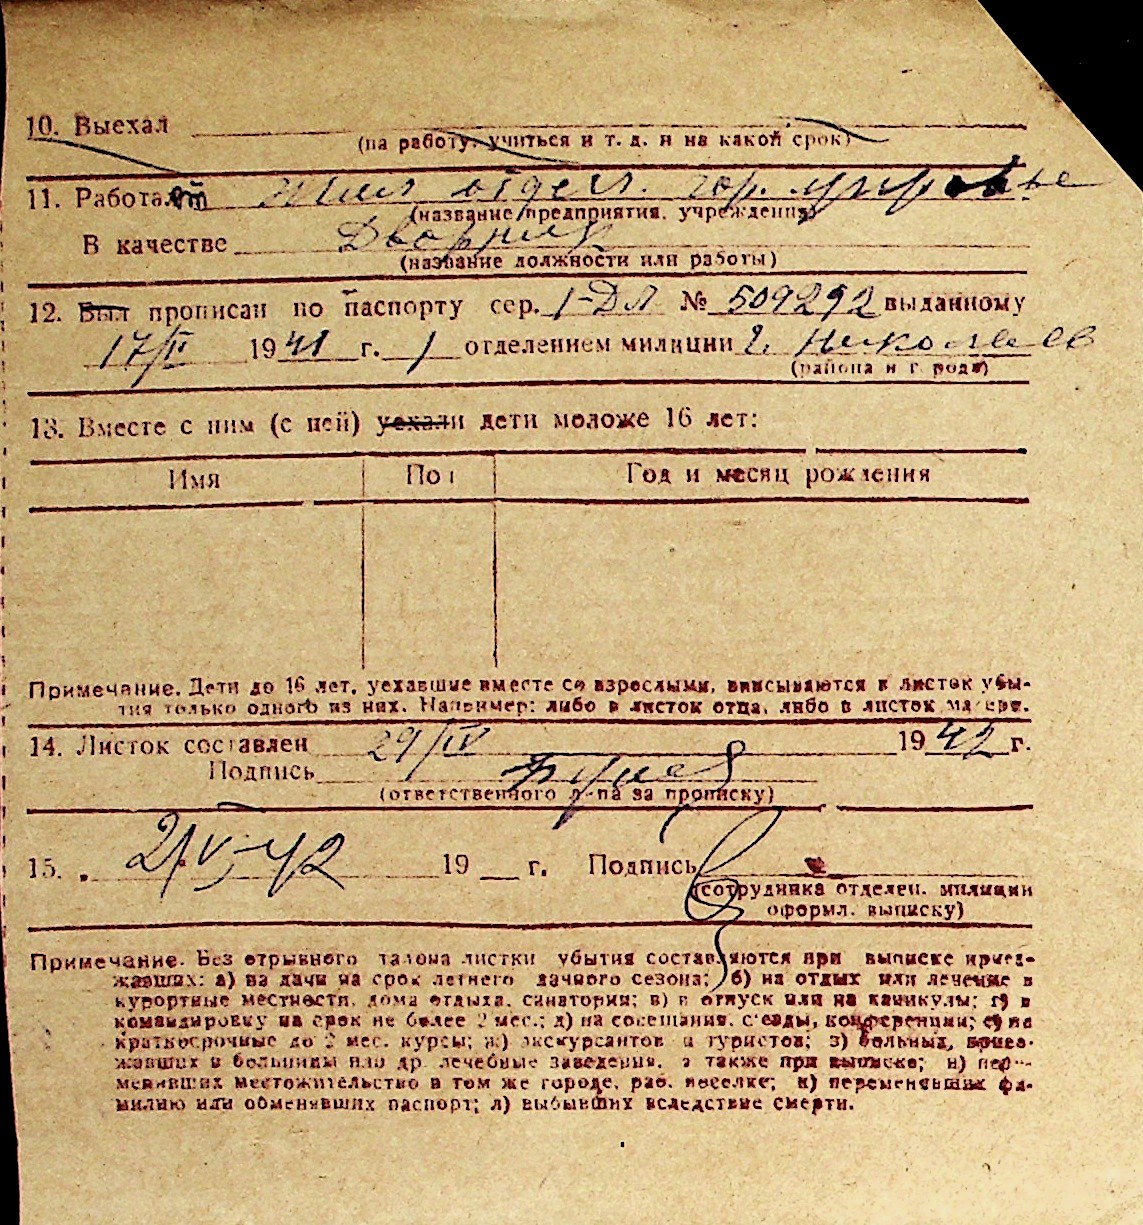 10. Выехал
(на работу, учиться и т. д. и на какой срок)
11. Работает Жил отдел. гор. управ
(название предприятия, учреждения)
В качестве Дворник
(название должности или работы)
12. Был прописан по паспорту сер. 1-ДЛ № 509292 выданному
17/II 1941 г. 1 отделением милиции г. Николаев
(района и города)
13. Вместе с ним (с ней) уехали дети моложе 16 лет:
Имя Пол Год и месяц рождения
Примечание. Дети до 16 лет, уехавшие вместе со взрослыми, вписываются в листок убы-
тия только одного из них. Например: либо в листок отца, либо в листок матери.
14. Листок составлен 29/IV 1942 г.
Подпись
(ответственного л-ца за прописку)
15. 2/V-42 19 г. Подпись
(сотрудника отделен. милиции
оформл. выписку)
Примечание. Без отрывного талона листки убытия составляются при выписке приез-
жавших: а) на дачи на срок летнего дачного сезона; б) на отдых или лечение в
курортные местности, дома отдыха, санатории; в) в отпуск или на каникулы; г) в
командировку на срок не более 2 мес.; д) на совещания, съезды, конференции; е) на
краткосрочные до 2 мес. курсы; ж) экскурсантов и туристов; з) больных, приез-
жавших в больницы или др. лечебные заведения, а также при выписке; и) пере-
менивших местожительство в том же городе, раб. поселке; к) переменивших фа-
милию или обменявших паспорт; л) выбывших вследствие смерти.